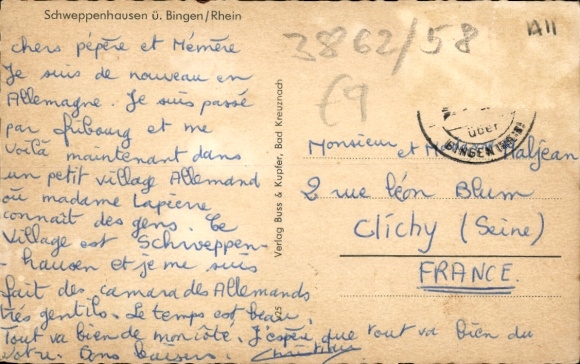 Schweppenhausen ü. Bingen/Rhein
3862/58
A11
€9
chers pépère et Mémère
Je suis de nouveau en
Allemagne. Je suis passé
par fribourg et me
voilà maintenant dans
un petit village Allemand
où madame Lapierre
connaît des gens. Ce
village est Schweppen-
hausen et je me suis
fait des camarades Allemands
très gentils. Le temps est beau.
Tout va bien de mon côté. J'espère que tout va bien du
vôtre. Bons baisers.
Verlag Buss & Kupfer, Bad Kreuznach
925
über
BINGEN
Monsieur et Maljean
2 rue Léon Blum
Clichy (Seine)
FRANCE.